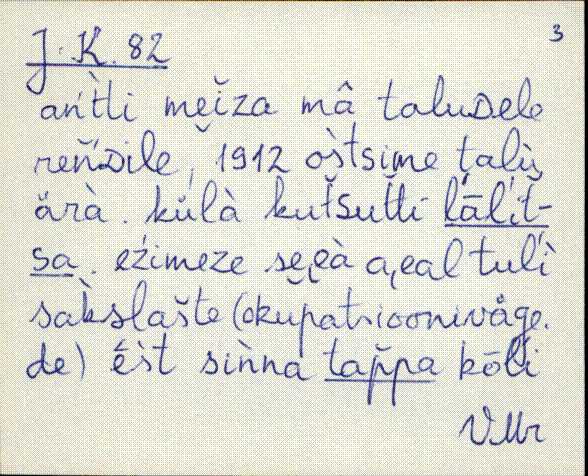 3
J. K. 82
añt̀li meǐza mâ taluᴅele
reňᴅile, 1912 òštsime talù
ärà. külà kutšutti lālit-
sa. eźimeze sẹẹà a,eal tulì
sàkslašte (okupatsioonivåge-
de) ést siǹna tap̆pa kōli
VMr